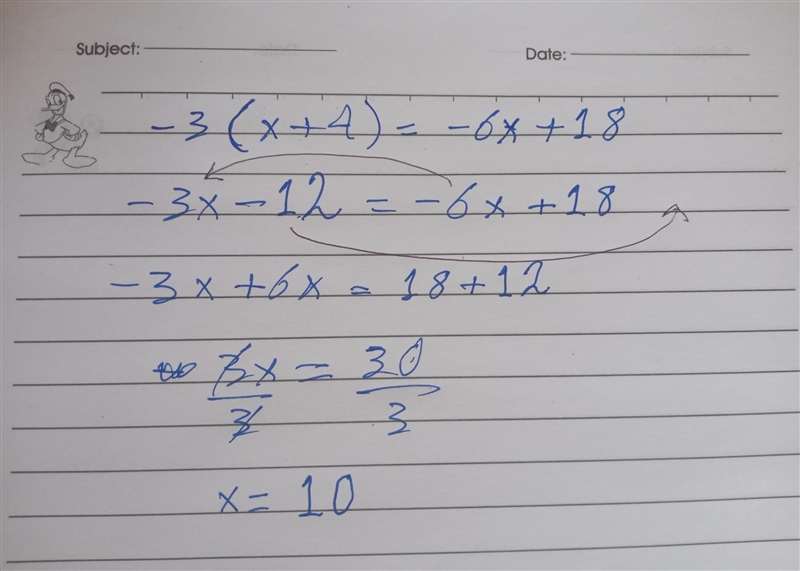 Subject: Date:
-3(x+4) = -6x+18
-3x-12 = -6x+18
-3x+6x = 18+12
3x/3 = 30/3
x = 10